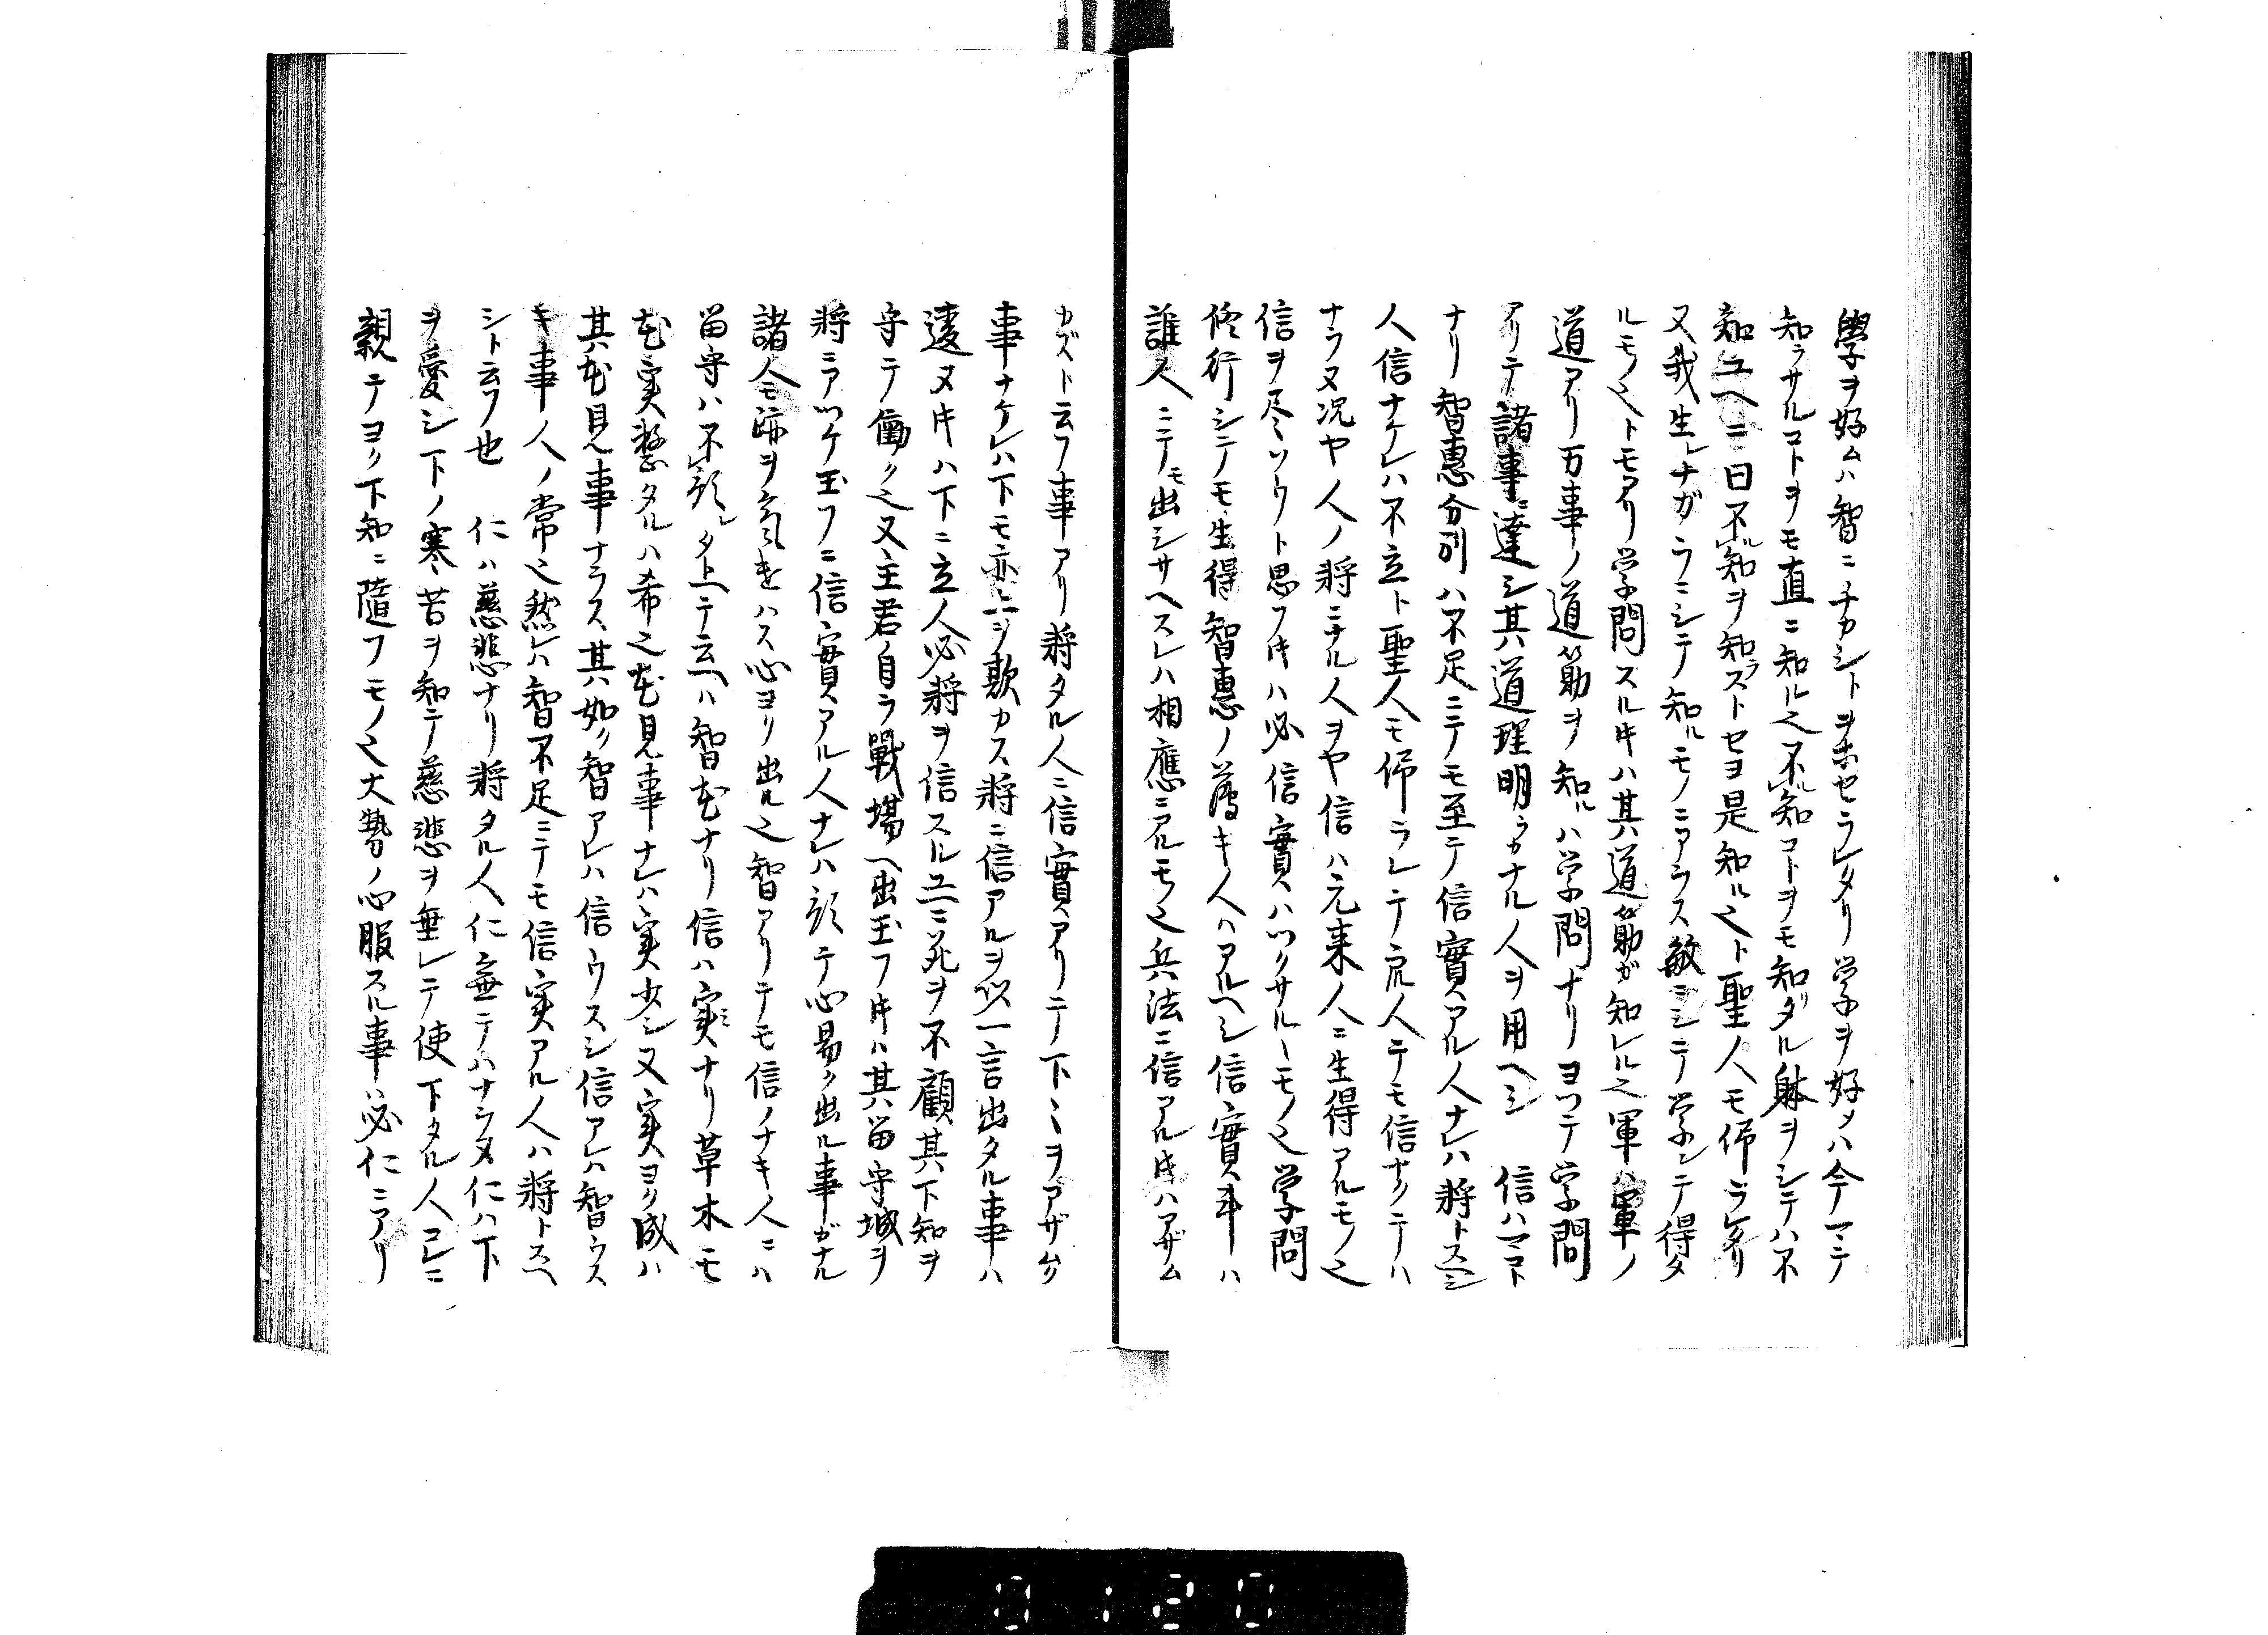 學ヲ好ムハ智ニチカシトヲホセラレタリ学ヲ好メハ今マテ
知ラサルコトヲモ直ニ知ル也不ル知コトヲモ知リタル躰ヲシテハ不
知ユヘニ曰不ルヲ知ヲ知ラストセヨ是知ル也ト聖人モ仰ラレタリ
又我生レナガラニシテ知ルモノニアラス敏ニシテ学ンテ得タ
ルモノ也トモアリ学問スル寸ハ其道筋ガ知レル也軍ハ軍ノ
道アリ万事ノ道筋ヲ知ルハ学問ナリヨツテ学問
アリテ諸事ニ達シ其道理明ラカナル人ヲ用ヘシ 信ハマコト
ナリ智惠分別ハ不足ニテモ至テ信實アル人ナレハ将トスヘシ
人信ナケレハ不立ト聖人モ仰ラレテ凡人テモ信ナクテハ
ナラヌ況ヤ人ノ将ニナル人ヲヤ信ハ元来人ニ生得アルモノ也
信ヲ尽ソウト思フ寸ハ必信實ハツクサルヽモノ也学問
修行シテモ生得智惠ノ薄キ人ハアルヘシ信實斗ハ
誰人ニテモ出シサヘスレハ相應ニアルモノ也兵法ニ信アル寸ハアザム
カズト云フ事アリ将タル人ニ信實アリテ下ヽヲアザムク
事ナケレハ下モ亦上ヲ欺カス将ニ信アルヲ以一言出タル事ハ
違ヌ寸ハ下ニ立人必将ヲ信スルユヘニ死ヲ不顧其下知ヲ
守テ働ク也又主君自ラ戰場ヘ出玉フ寸ハ其留守城ヲ
将ニアツケ玉フニ信實アル人ナレハ預テ心易ク出ル事ガナル
諸人モ跡ヲ氣遣ハス心ヨリ出ル也智アリテモ信ノナキ人ニハ
留守ハ不預レタトヘテ云ヘハ智ハ花ナリ信ハ実ミナリ草木モ
花実整タルハ希也花見事ナレハ実少シ又実ヨク成ハ
其花見事ナラス其如ク智アレハ信ウスシ信アレハ智ウス
キ事人ノ常也然レハ智不足ニテモ信実アル人ハ将トスヘ
シト云フ也 仁ハ慈悲ナリ将タル人仁無テハナラヌ仁ハ下
ヲ愛シ下ノ寒苦ヲ知テ慈悲ヲ垂レテ使下タル人コレニ
親テヨク下知ニ隨フモノ也大勢ノ心服スル事ハ必仁ニアリ